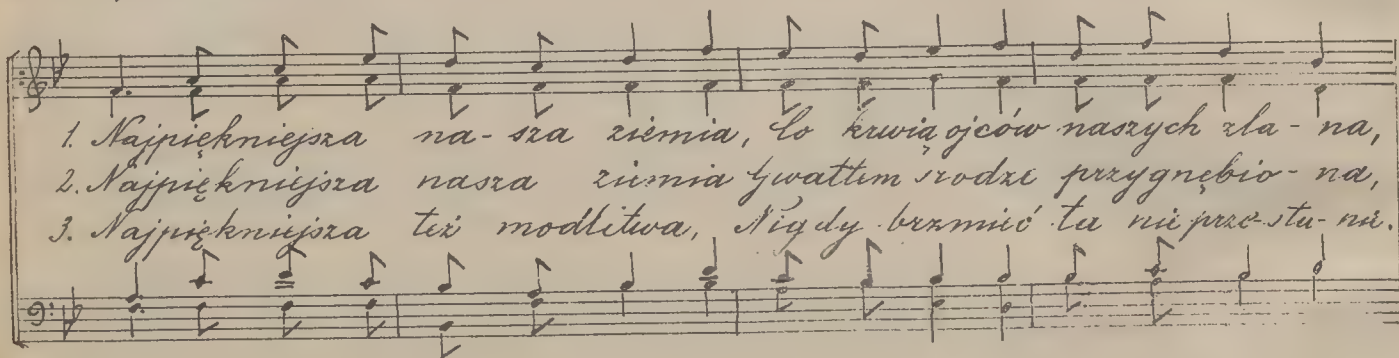 1. Najpiękniejsza na-sza ziemia, Co krwią ojców naszych zla-na,
2. Najpiękniejsza nasza ziemia Gwałtem srodze przygnębio-na,
3. Najpiękniejsza też modlitwa, Nigdy brzmieć ta nie prze-sta-nie.